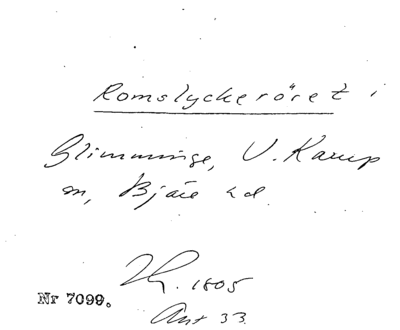 Romslyckeröret i
Glimminge, V. Karup
sn, Bjäre hd.
1805
Nr 7099.
Ant 33